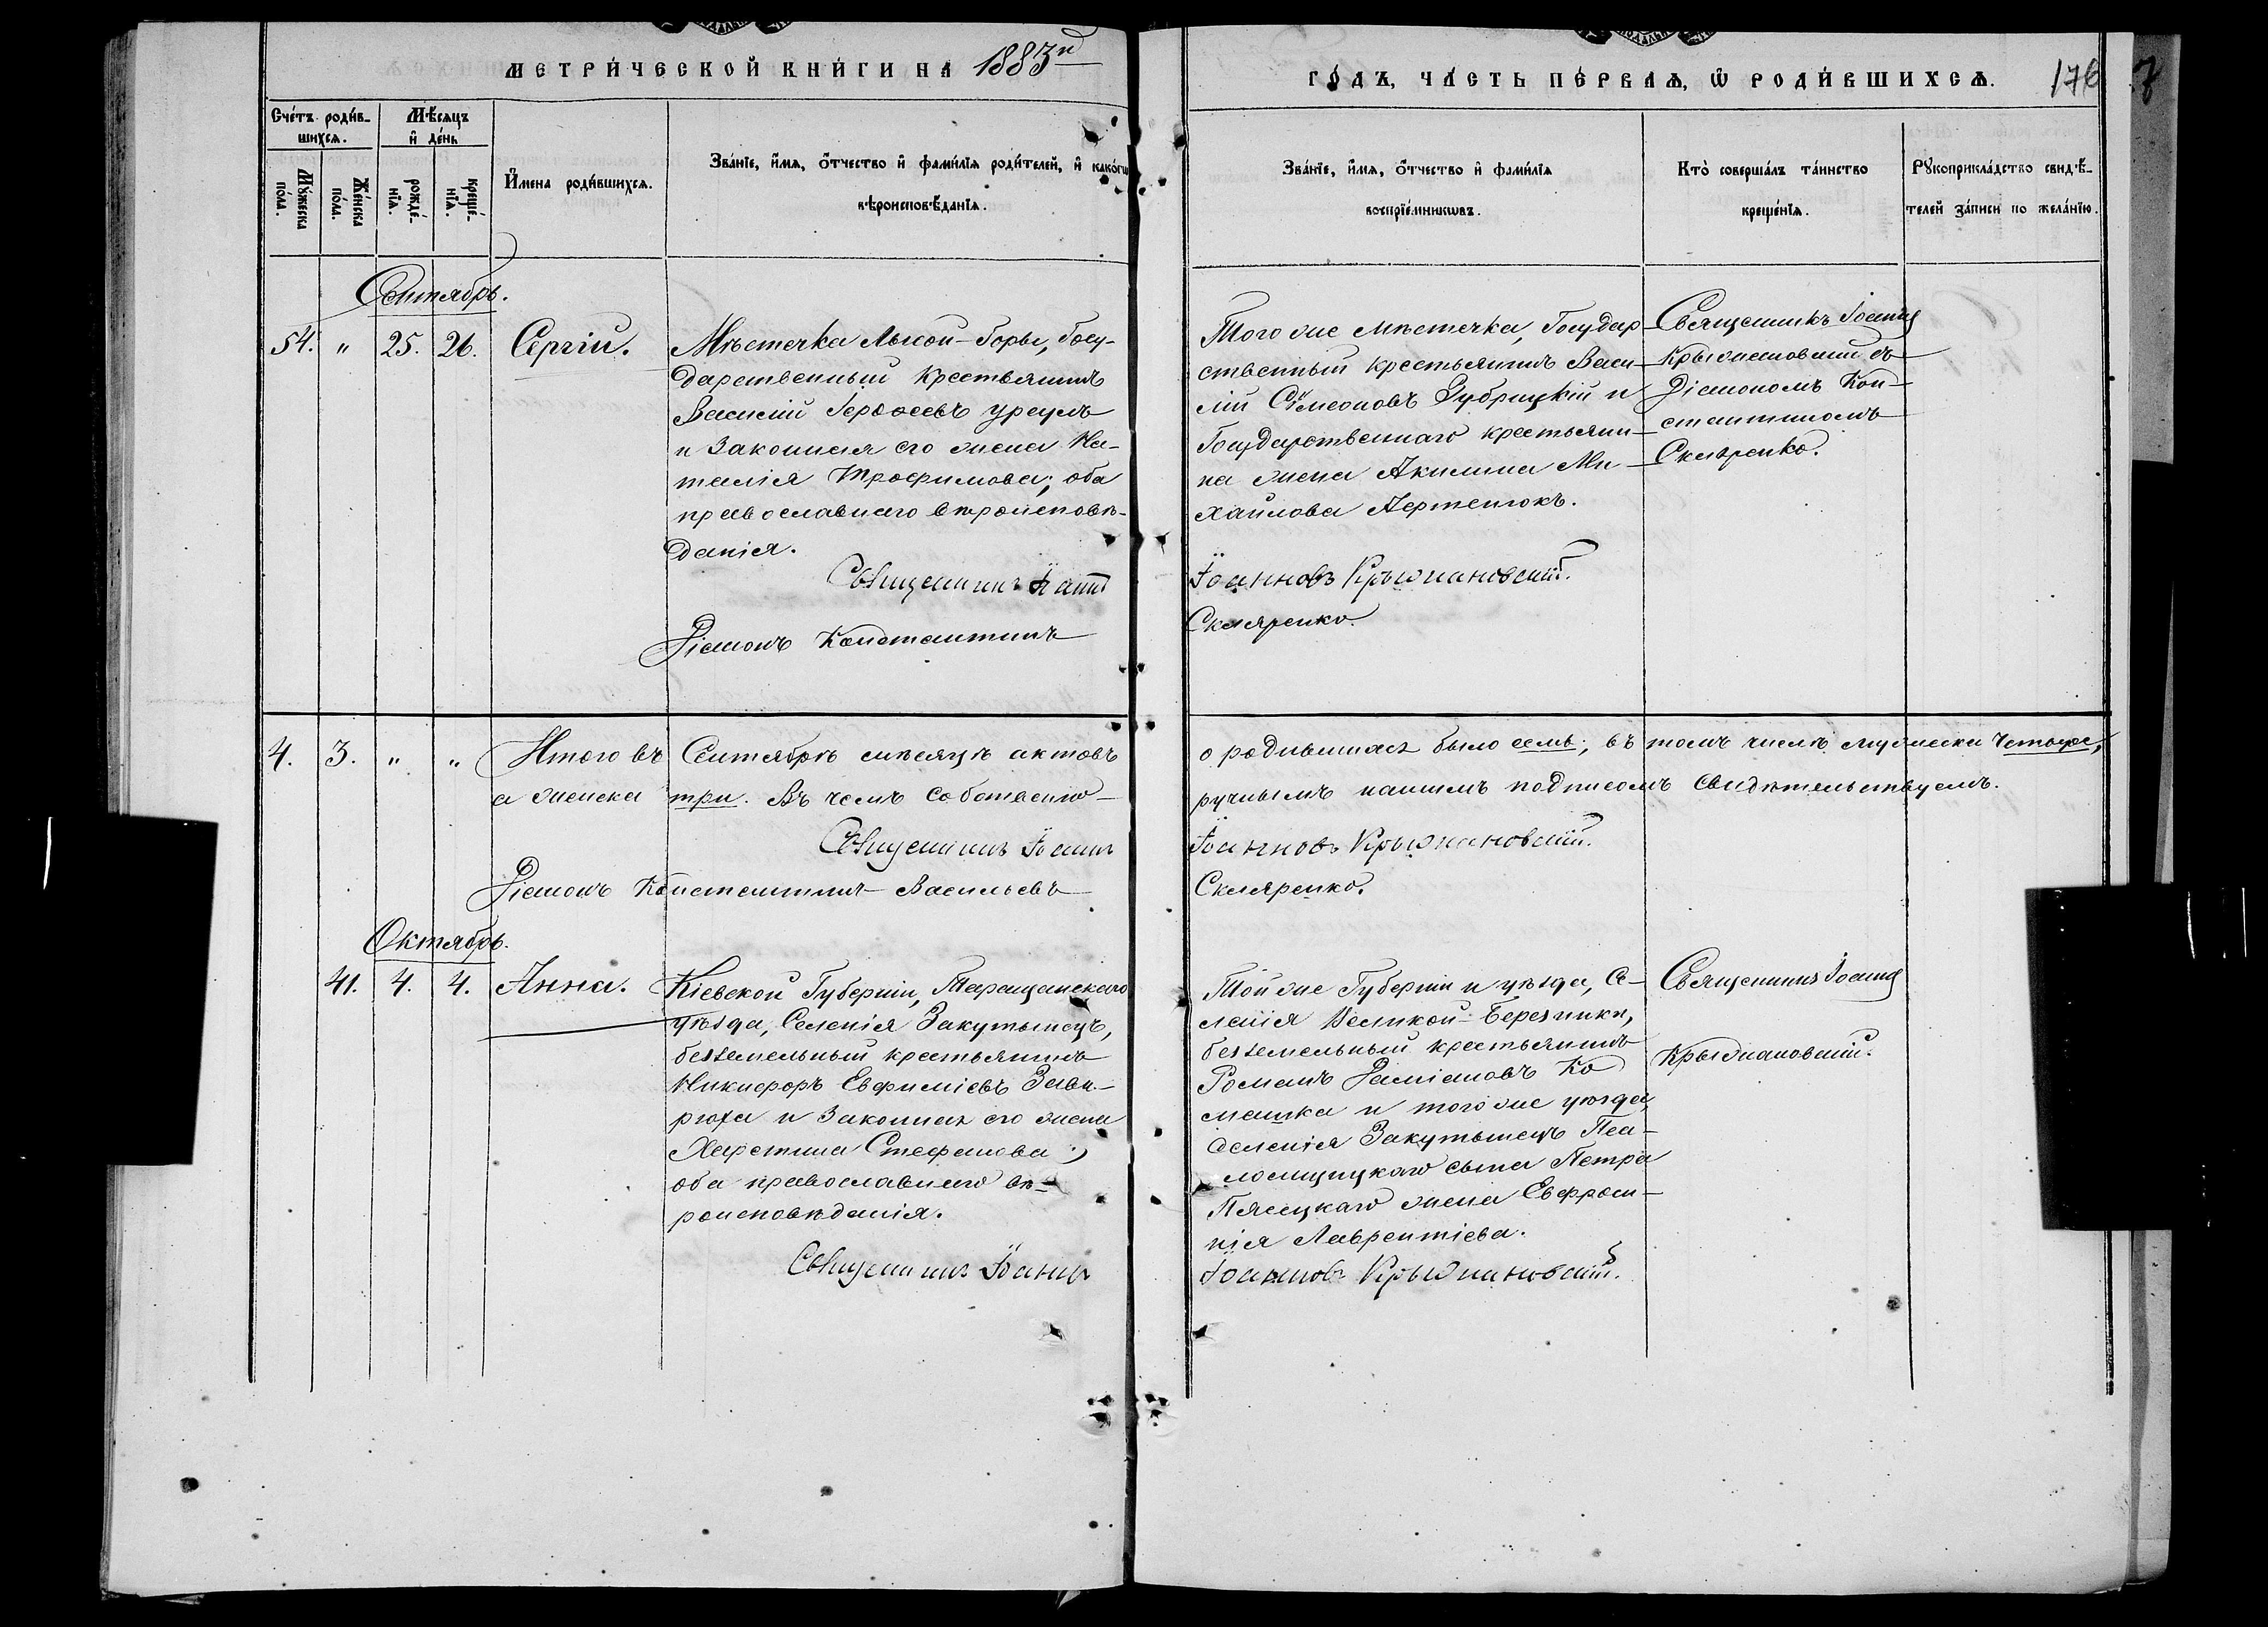 МЕТРИ́ЧЕСКОЙ КНИ́ГИ НА 1883й
ГО́ДЪ, ЧА́СТЬ ПЕ́РВАѦ, Ѡ РОДИ́ВШИХСѦ.
176
Сче́тъ роди́в-
шихсѧ.
Мѣ́сѧцъ
и҆ де́нь
Мꙋ́жеска
по́ла.
Же́нска
по́ла.
рожде́-
нїѧ.
креще́-
нїѧ.
И҆мена роди́вшихсѧ.
Зва́нїе, и҆́мѧ, ѻ҆́тчество и҆ фами́лїѧ роди́телей, и҆ како́гѡ
вѣроисповѣ́данїѧ.
Зва́нїе, и҆́мѧ, ѻ҆́тчество и҆ фами́лїѧ
воспрїе́мникѡвъ.
Кто̀ соверша́лъ та́инство
креще́нїѧ.
Рꙋкоприкла́дство свидѣ́-
телей за́писи по жела́нїю.
Сентябрь.
54. " 25. 26. Сергій.
Мѣстечка Лысой-Горы, Госу-
дарственный крестьянинъ
Василій
и законная его жена На-
талія Трофимова; оба
православнаго вѣроисповѣ-
данія.
Священникъ Іоаннъ
Діаконъ Константинъ
Того же мѣстечка, Государ-
ственный крестьянинъ Васи-
лій Сѵмеоновъ Зубрицкій и
Государственнаго крестьяни-
на жена Акилина Ми-
хаилова
Іоанновъ Крыжановскій.
Скляренко.
Священникъ Іоаннъ
Крыжановскій съ
Діакономъ Кон-
стантиномъ
Скляренко.
4. 3. " " Итого въ Сентябрѣ мѣсяцѣ актовъ
о родившихся было семь; въ томъ числѣ мужеска четыре,
а женска три. Въ чемъ собственно-
ручнымъ нашимъ подписомъ свидѣтельствуемъ.
Священникъ Іоаннъ
Іоанновъ Крыжановскій.
Діаконъ Константинъ Васильевъ
Скляренко.
Октябрь.
41. 4. 4. Анна.
Кіевской Губерніи, Таращанскаго
уѣзда, Селенія Закутынецъ,
безземельный крестьянинъ
Никифоръ Евфиміевъ Зави-
рюха и законная его жена
Харетина Стефанова;
оба православнаго вѣ-
роисповѣданія.
Священникъ Іоаннъ
Той же Губерніи и уѣзда, Се-
ленія Великой-Березянки,
безземельный крестьянинъ
Романъ Даміановъ Ко
машка и того же уѣзда,
селенія Закутынецъ Пса-
ломщицкаго сына Петра
Пясецкаго жена Евфроси-
нія Лаврентіева.
Іоанновъ Крыжановскій.
Священникъ Іоаннъ
Крыжановскій.